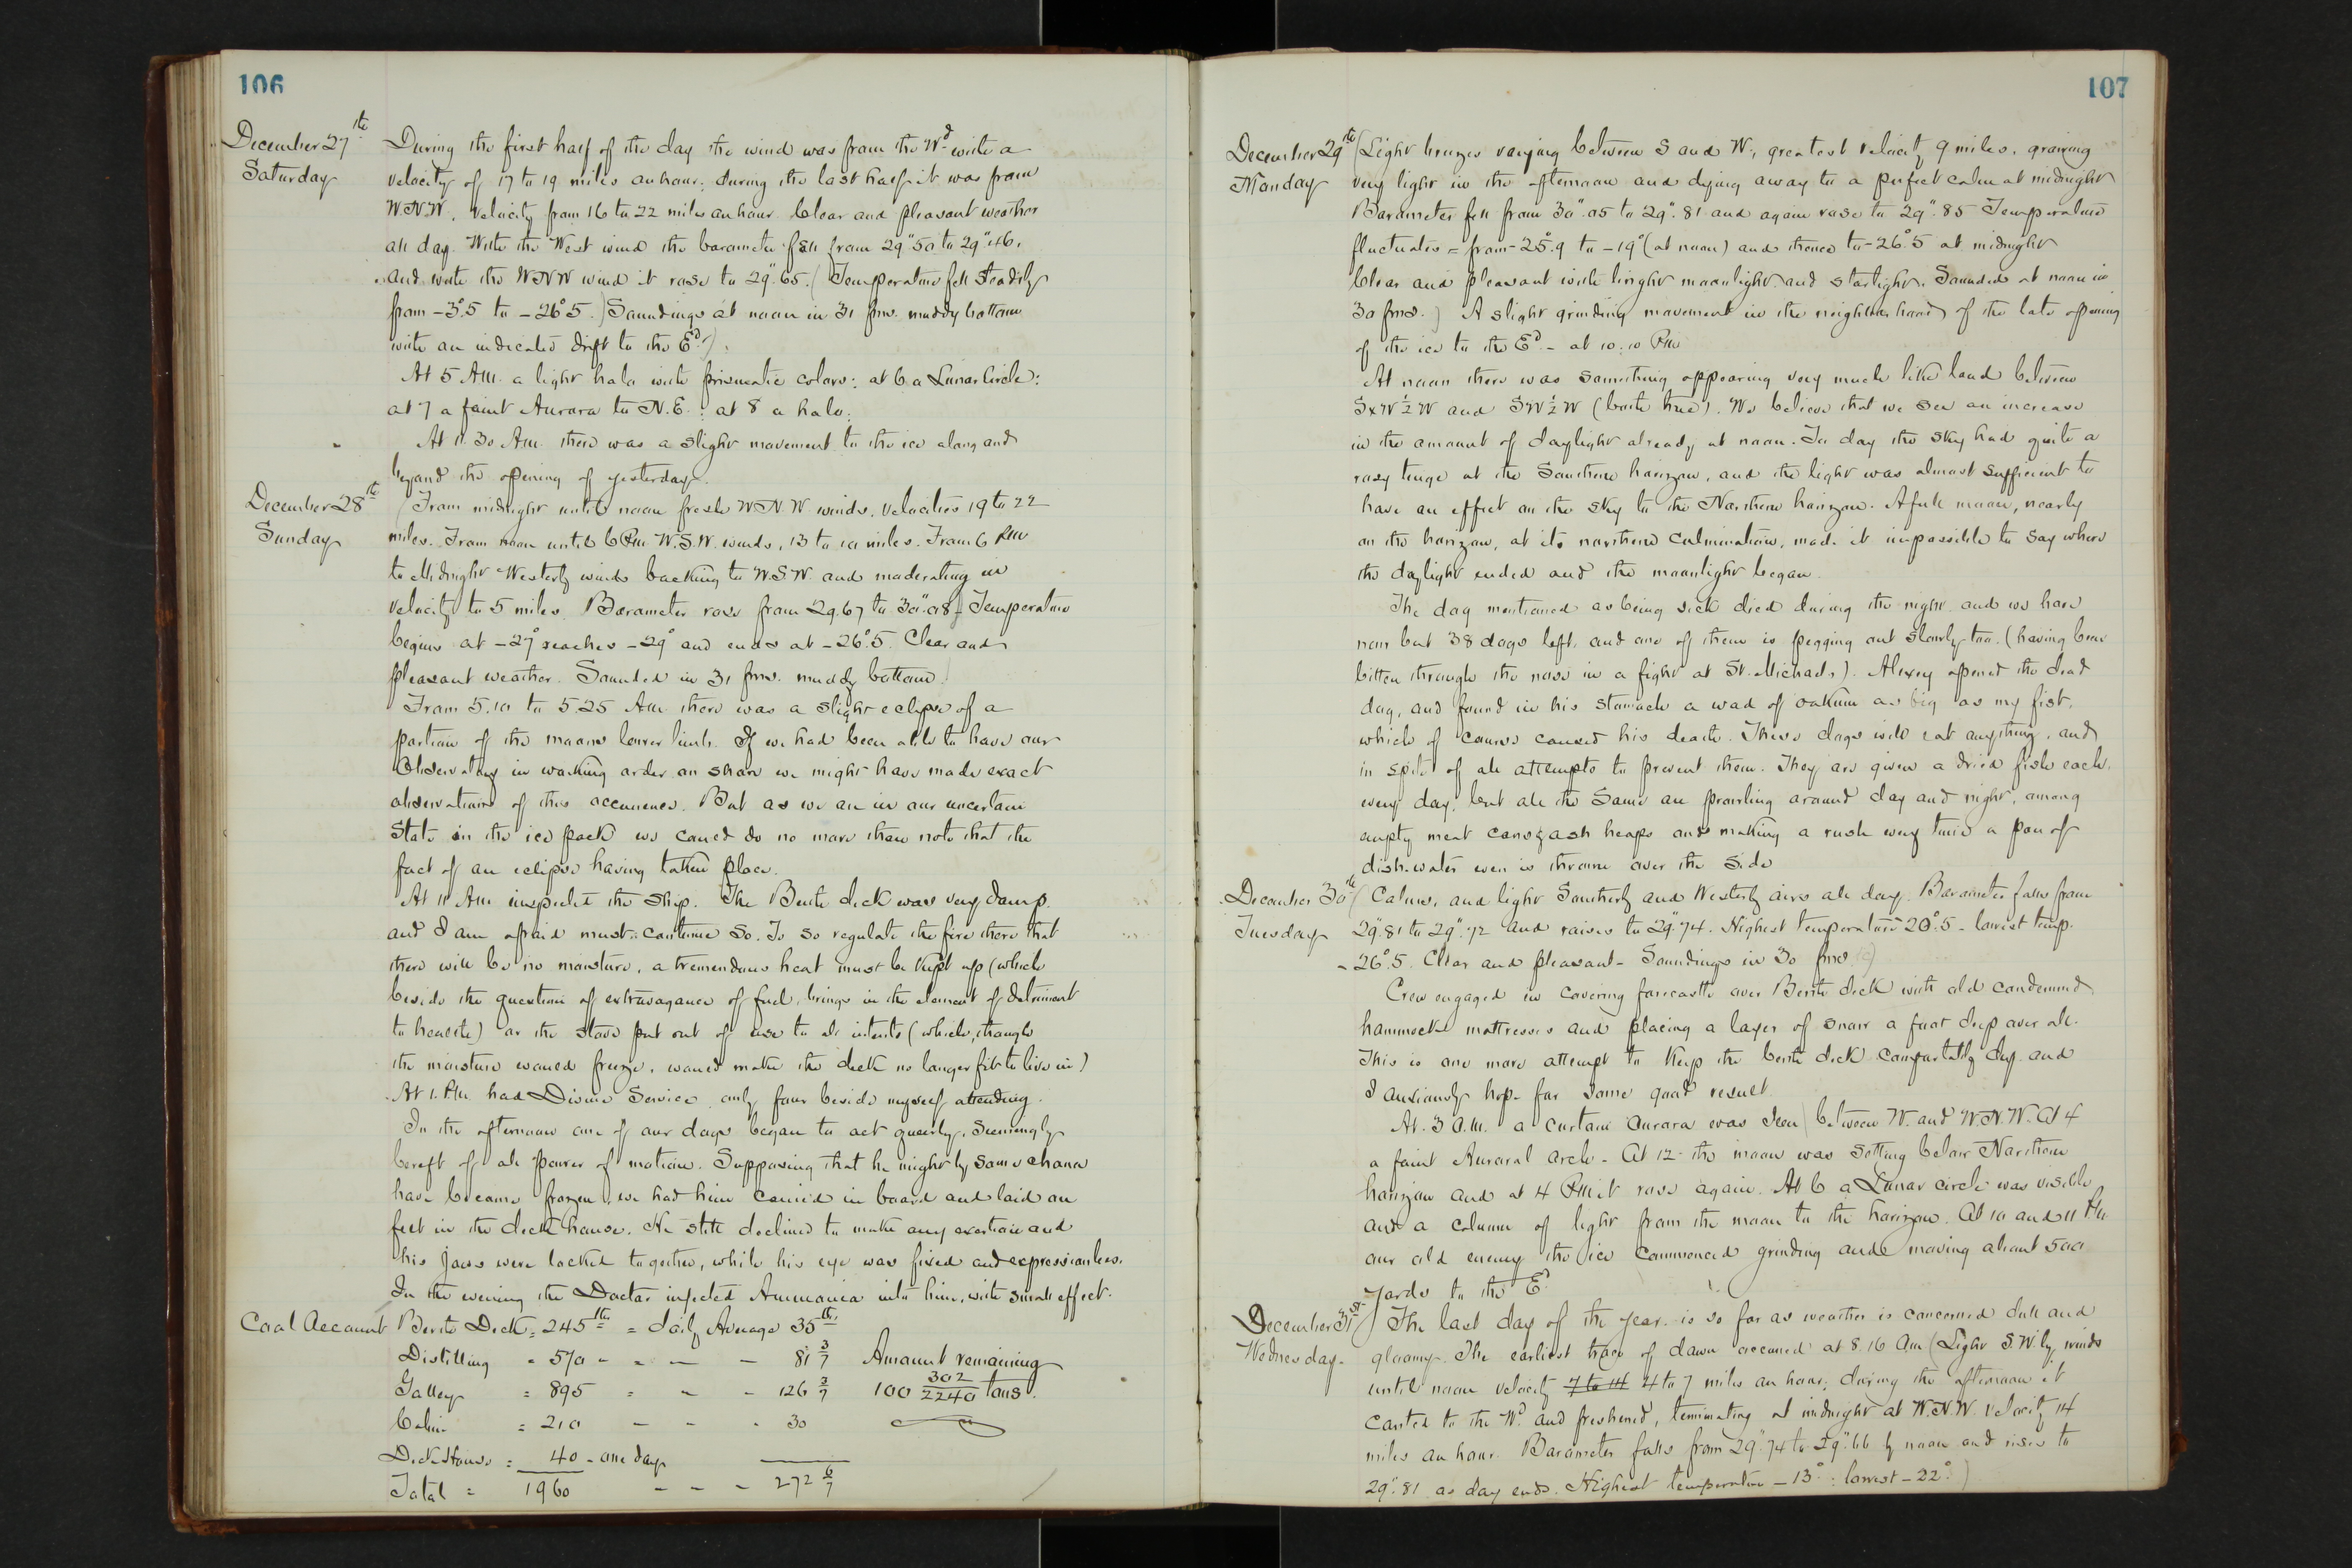 106
December 27th
Saturday
During the first half of the day the wind was from the Wd with a
velocity of 17 to 19 miles an hour; during the last half it was from
W.N.W., velocity from 16 to 22 miles an hour. Clear and pleasant weather
all day. With the West wind the barometer fell from 29".50 to 29".46,
and with the WNW wind it rose to 29".65. (Temperature fell steadily
from -3°.5 to -26°5.) Soundings at noon in 31 fms. muddy bottom
with an indicated drift to the Ed.).
At 5 A.M. a light halo with prismatic colors: at 6 a Lunar Circle:
at 7 a faint Aurora to N.E.: at 8 a halo.
At 11.30 A.M. there was a slight movement to the ice along and
beyond the opening of yesterday.
December 28th
Sunday
(From midnight until noon fresh W.N.W. winds, velocities 19 to 22
miles. From noon until 6 P.M. W.S.W. winds, 13 to 10 miles. From 6 P.M.
to Midnight Westerly winds backing to W.S.W. and moderating in
velocity to 5 miles. Barometer rose from 29.67 to 30".08 - Temperature
begins at -27° reaches -29° and ends at -26°.5. Clear and
pleasant weather. Sounded in 31 fms. muddy bottom.)
From 5.10 to 5.25 A.M. there was a slight eclipse of a
portion of the moons lower limb. If we had been able to have our
Observatory in working order on shore we might have made exact
observations of this occurrence. But as we are in our uncertain
state in the ice pack we could do no more than note that the
fact of an eclipse having taken place.
At 11 A.M. inspected the ship. The Berth deck was very damp.
and I am afraid must continue so. To so regulate the fire there that
there will be no moisture, a tremendous heat must be kept up (which
beside the question of extravagance of fuel, brings in the element of detriment
to health) or the stove put out of use to all intents (which, though
the moisture would freeze, would make the deck no longer fit to live in)
At 1. P.M. had Divine Service only four beside myself attending.
In the afternoon one of our dogs began to act queerly, seemingly
bereft of all power of motion. Supposing that he might by some chance
have become frozen, we had him carried in board and laid on
felt in the deck house. He still declined to make any exertion and
his jaws were locked together, while his eye was fixed and expressionless.
In the evening the Doctor injected Ammonia into him, with small effect.
Coal Account
Berth Deck = 245 lbs = daily Average 35 lbs
Distilling = 570 - - - - 81 3/7 Amount remaining
Galley = 895 = - - 126 3/7 100 302/2240 tons.
Cabin = 210 - - - 30
Deck House = 40 - one day
Total = 1960 - - - 272 6/7
107
December 29th
Monday
(Light breezes varying between S and W, greatest velocity 9 miles, growing
very light in the afternoon and dying away to a perfect calm at midnight
Barometer fell from 30".05 to 29".81 and again rose to 29".85 Temperature
fluctuates = from -25°.9 to -19° (at noon) and thence to -26°.5 at midnight
Clear and pleasant with bright moonlight and starlight. Sounded at noon in
30 fms.) A slight grinding movement in the neighborhood of the late opening
of the ice to the Ed. - at 10:10 P.M.
At noon there was something appearing very much like land between
SxW½W and SW½W (both true). We believe that we see an increase
in the amount of daylight already at noon. To day the sky had quite a
rosy tinge at the Southern horizon, and the light was almost sufficient to
have an effect on the sky to the Northern horizon. A full moon, nearly
on the horizon, at its northern culmination, made it impossible to say where
the daylight ended and the moonlight began.
The dog mentioned as being sick died during the night and we have
now but 38 dogs left, and one of them is pegging out slowly too. (having been
bitten through the nose in a fight at St. Michaels). Alexey opened the dead
dog, and found in his stomach a wad of oakum as big as my fist,
which of course caused his death. These dogs will eat anything, and
in spite of all attempts to prevent them. They are given a dried fish each
every day, but all the same are prowling around day and night, among
empty meat cans & ash heaps and making a rush every time a pan of
dish-water even is thrown over the side
December 30th
Tuesday
(Calms, and light Southerly and Westerly airs all day. Barometer falls from
29".81 to 29".72 and raises to 29".74. Highest temperature -20°.5 - lowest temp.
-26°.5. Clear and pleasant - Soundings in 30 fms.)
Crew engaged in covering forecastle over Berth deck with old condemned
hammocks mattresses and placing a layer of snow a foot deep over all.
This is one more attempt to keep the berth deck comfortably dry and
I anxiously hope for some good result.
At 3 a.m. a curtain aurora was seen between W. and W.N.W. At 4
a faint Auroral arch - At 12 the moon was setting below Northern
horizon and at 4 P.M. it rose again. At 6 a Lunar circle was visible
and a column of light from the moon to the horizon. At 10 and 11 P.M.
our old enemy the ice commenced grinding and moving about 500
yards to the Ed.
December 31st
Wednesday.
The last day of the year is so far as weather is concerned dull and
gloomy. The earliest trace of dawn occurred at 8.16 a.m (Light S.W.ly winds
until noon velocity 7 to 14 4 to 7 miles an hour; during the afternoon it
canted to the Wd. and freshened, terminating at midnight at W.N.W. velocity 14
miles an hour. Barometer falls from 29".74 to 29".66 by noon and rises to
29".81 as day ends. Highest temperature -13°: lowest -22°.)